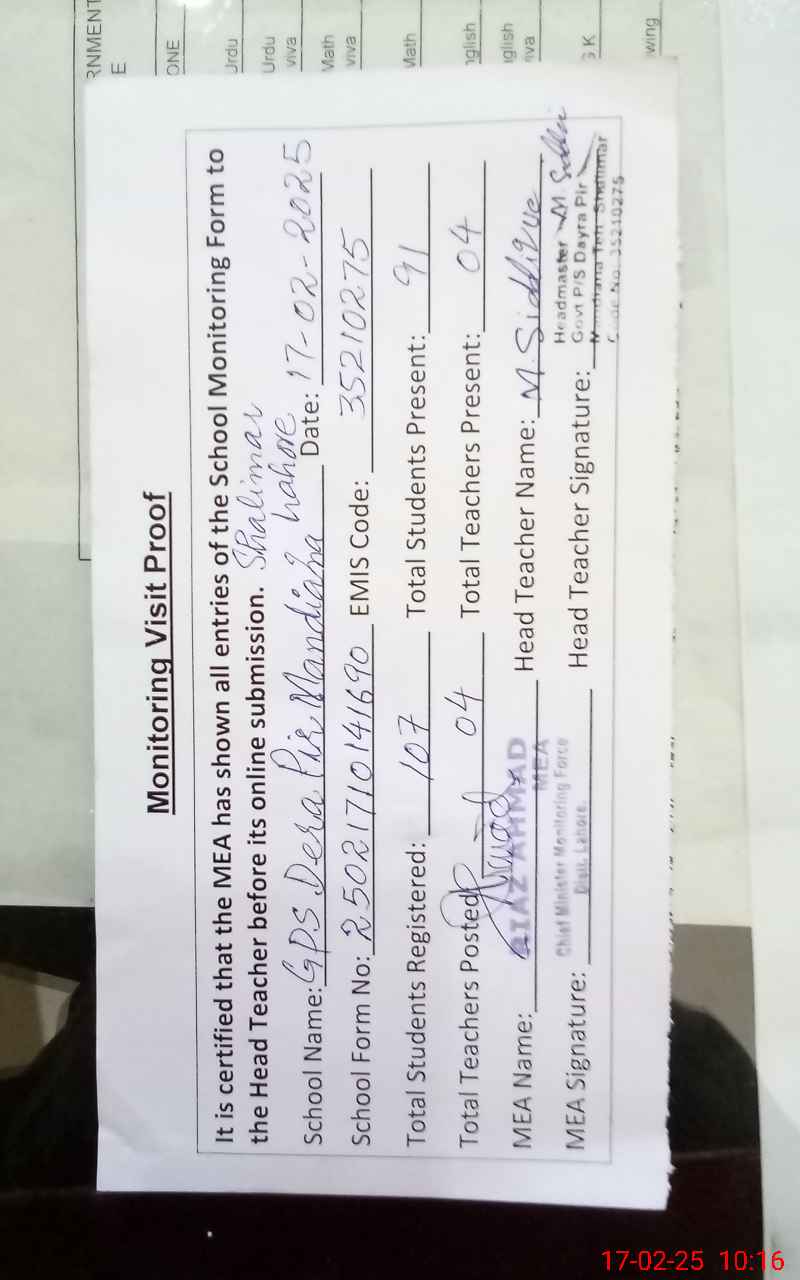 Monitoring Visit Proof
It is certified that the MEA has shown all entries of the School Monitoring Form to
the Head Teacher before its online submission. Shalimar
School Name: GPS Dera Pir Mandiana Lahore Date: 17-02-2025
School Form No: 25021710141690 EMIS Code: 35210275
Total Students Registered: 107 Total Students Present: 91
Total Teachers Posted: 04 Total Teachers Present: 04
MEA Name: RIAZ AHMAD Head Teacher Name: M. Siddique
MEA
Chief Minister Monitoring Force
Distt. Lahore.
MEA Signature: Head Teacher Signature:
Headmaster
Govt P/S Dayra Pir
Mandiana Teh Shalimar
Code No. 35210275
RNMENT
E
ONE
Urdu
Urdu
viva
Math
viva
Math
nglish
nglish
iva
G K
wing
17-02-25 10:16